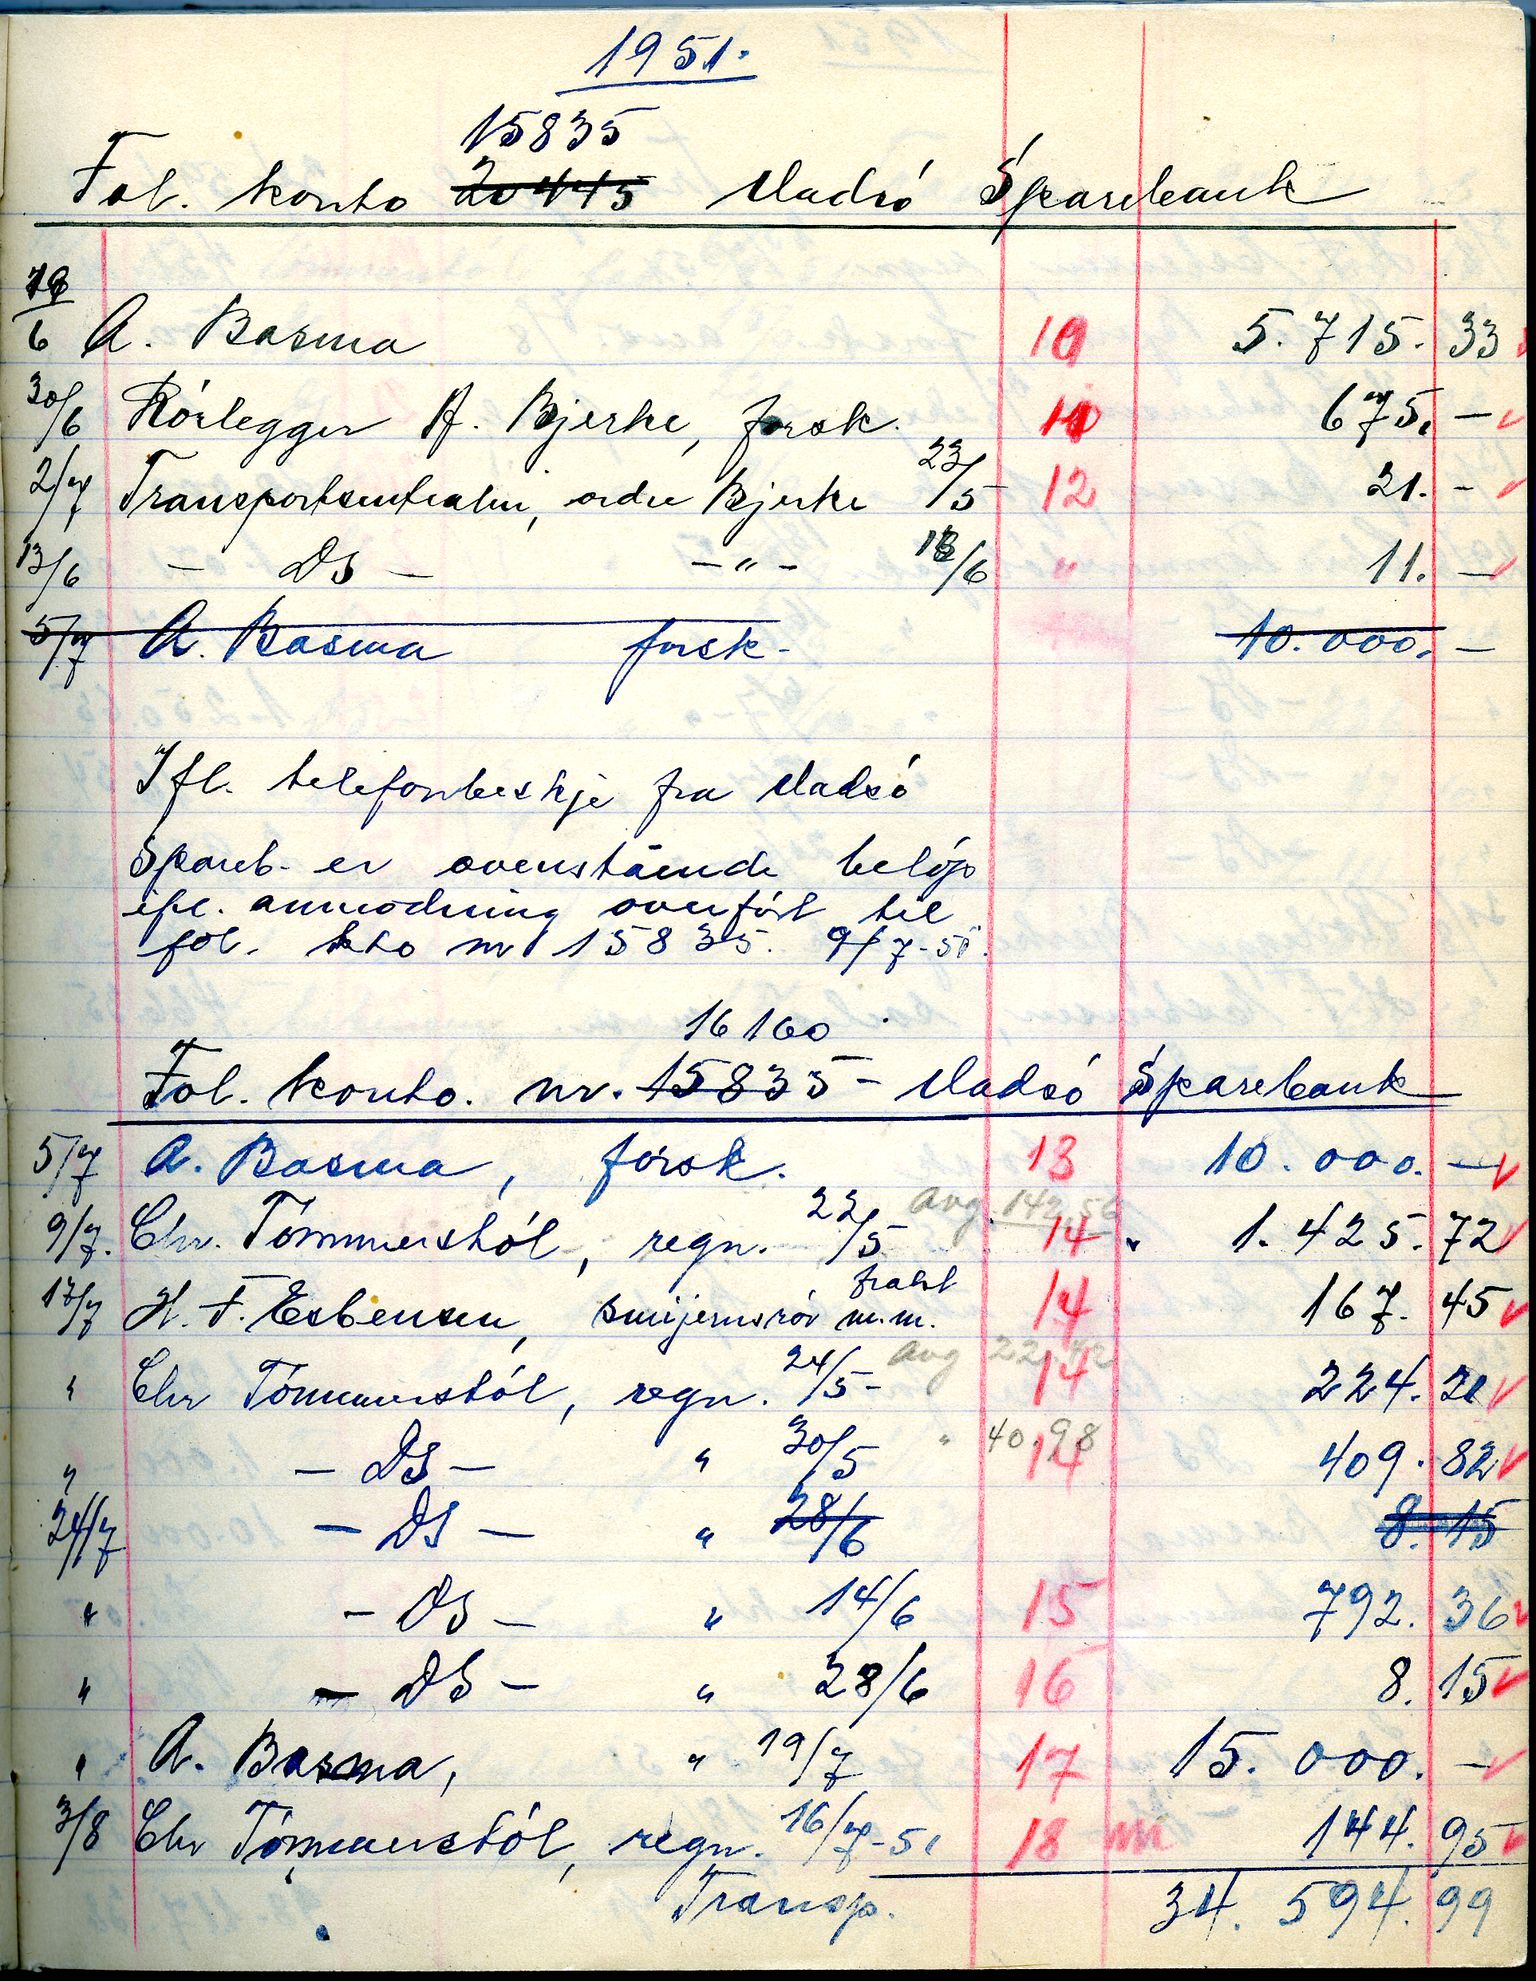 1951.
15835
Fol. konto 20445 Vadsó Sparebank
19/6 A. Basma 10 5.715.33
30/6 Rórlegger A. Bjerke, forsk. 11 675.-
2/7 Transportsentralen, ordre Bjerke 23/5 12 21.-
13/6 - DS - -"- 13/6 " 11.-
5/7 A. Basma forsk- 10.000.-
Ifl. telefonbeskje fra Vadsó
Spareb. er ovenstående belóp
ifl. anmodning overfórt til
fol. kto nr 15835. 9/7-51.
16160
Fol. konto. nr. 15835 - Vadsó Sparebank
5/7 A. Basma, forsk. 13 10.000.-
avg. 142.56
9/7. Chr. Tómmerstól, regn. 22/5 14 1.425.72
frakt
17/7 H. F. Esbensen, smijernsrór m.m. 14 167.45
avg 22.42
" Chr Tómmerstól, regn. 24/5- 14 224.20
" - DS - " 30/5 " 40.98 14 409.82
24/7 - DS - " 28/6 8.15
" - DS - " 14/6 15 792.36
" - DS - " 28/6 16 8.15
" A. Basma, " 19/7 17 15.000.-
3/8 Chr Tómmerstól, regn. 16/7-51 18 144.95
Transp. 34.594.99